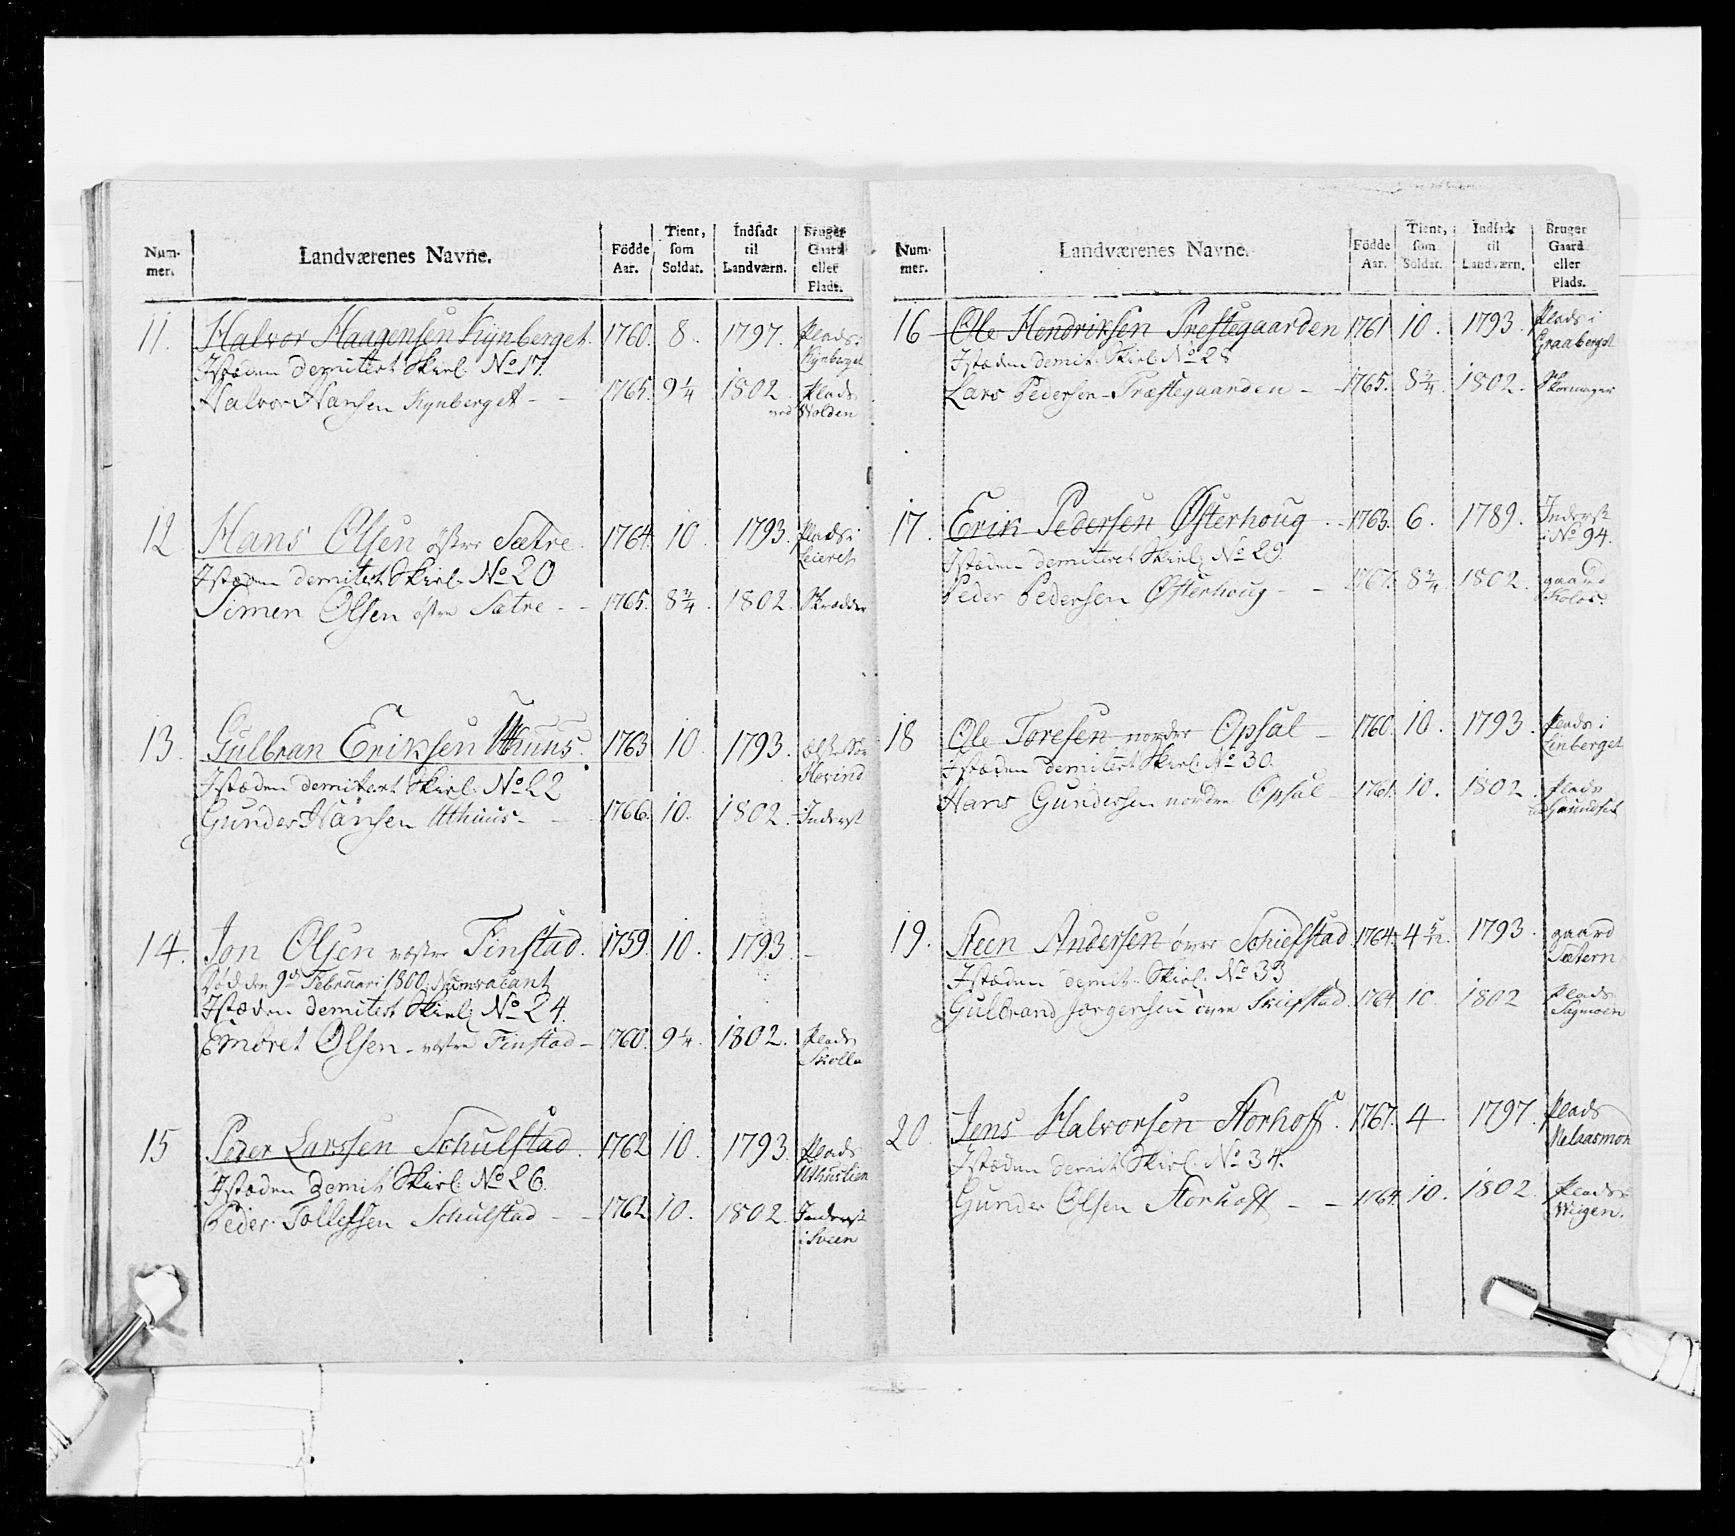 Num-mer. Landværenes Navne. Födde Aar. Tient, som Soldat. Indsadt til Landværn. Bruger Gaard eller Plads.
11. Halvor Haagensen Kynberget. 1760. 8. 1797. Plads i Kynberget
Istæden demitert Skirl. No 17.
Halvor Hansen Kynberget - - 1765. 9 1/4 1802. Plads ved Wolden
12 Hans Olsen östre Sætre. 1764. 10. 1793. Plads i Leieret
Istæden demitert Skirl. No 20
Simen Olsen östre Sætre - - 1765. 8 3/4. 1802. Skrædder
13. Gulbran Eriksen Uthuus. 1763 10. 1793. Hovind
Istæden demitert Skirl. No 22
Gunder Hansen Uthuus - - 1766. 10. 1802. Inderst
14. Jon Olsen vestre Finstad. 1759. 10. 1793. -
Död den 9de Februari 1800. Numvacant
Istæden demitert Skirl. No 24.
Embret Olsen - vestre Finstad - 1760. 9 1/4. 1802. Plads
15 Peder Larssen Schulstad. 1762 10. 1793. Plads Uthuuslien
Istæden demit. Skirl. No 26.
Peder Tollefssen Schulstad - - 1762 10. 1802. Inderst i Sveen
Num-mer. Landværenes Navne. Födde Aar. Tient, som Soldat. Indsadt til Landværn. Bruger Gaard eller Plads.
16 Ole Hendriksen Prestegaarden 1761 10. 1793. Plads i Graaberget
Istæden demit. Skirl. No 28
Lars Pedersen - Præstegaarden - - 1765. 8 3/4. 1802. Skoemager
17. Erik Pedersen Østerhoug. - 1763. 6. 1789. Inderst i No 94.
Istæden demitert Skirl. No 29.
Peder Pedersen Østerhoug - - 1767. 8 3/4. 1802. gaard
18 Ole Toresen nordre Opsal - 1760. 10. 1793. Plads i Linberget
Istæden demitert Skirl. No 30.
Hans Gundersen nordre Opsal - 1761. 10. 1802. Plads
19. Steen Andersen övre Schiefstad 1764. 4 1793. gaard Sætern
Istæden demit. Skirl. No 33
Gulbrand Jorgensen övre Skiefstad. 1764 10. 1802 Plads Sagmoen
20. Jens Halvorsen Storhoff. 1767. 4 1797. Plads
Istæden demit. Skirl. No 34.
Gunder Olsen Storhoff - - 1764. 10. 1802. Plads Weigen.